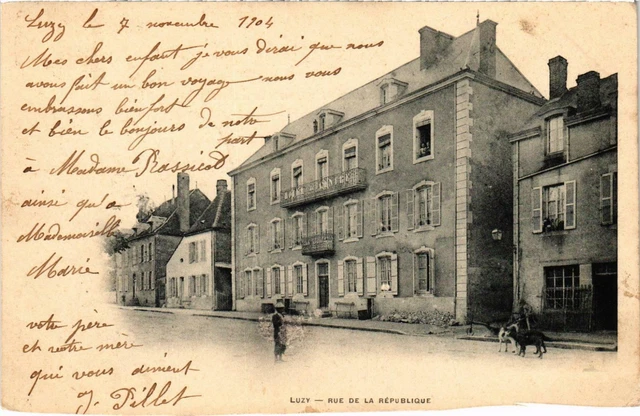 Luzy le 7 novembre 1904
Mes chers enfant je vous dirai que nous
avous fait un bon voyage nous vous
embrassons bien fort
et bien le bonjours de notre
part
à Madame Rassicod
ainsi qu'a
Mademoiselle
Marie
votre père
et votre mère
qui vous aiment
J. Pillet
LUZY — RUE DE LA RÉPUBLIQUE